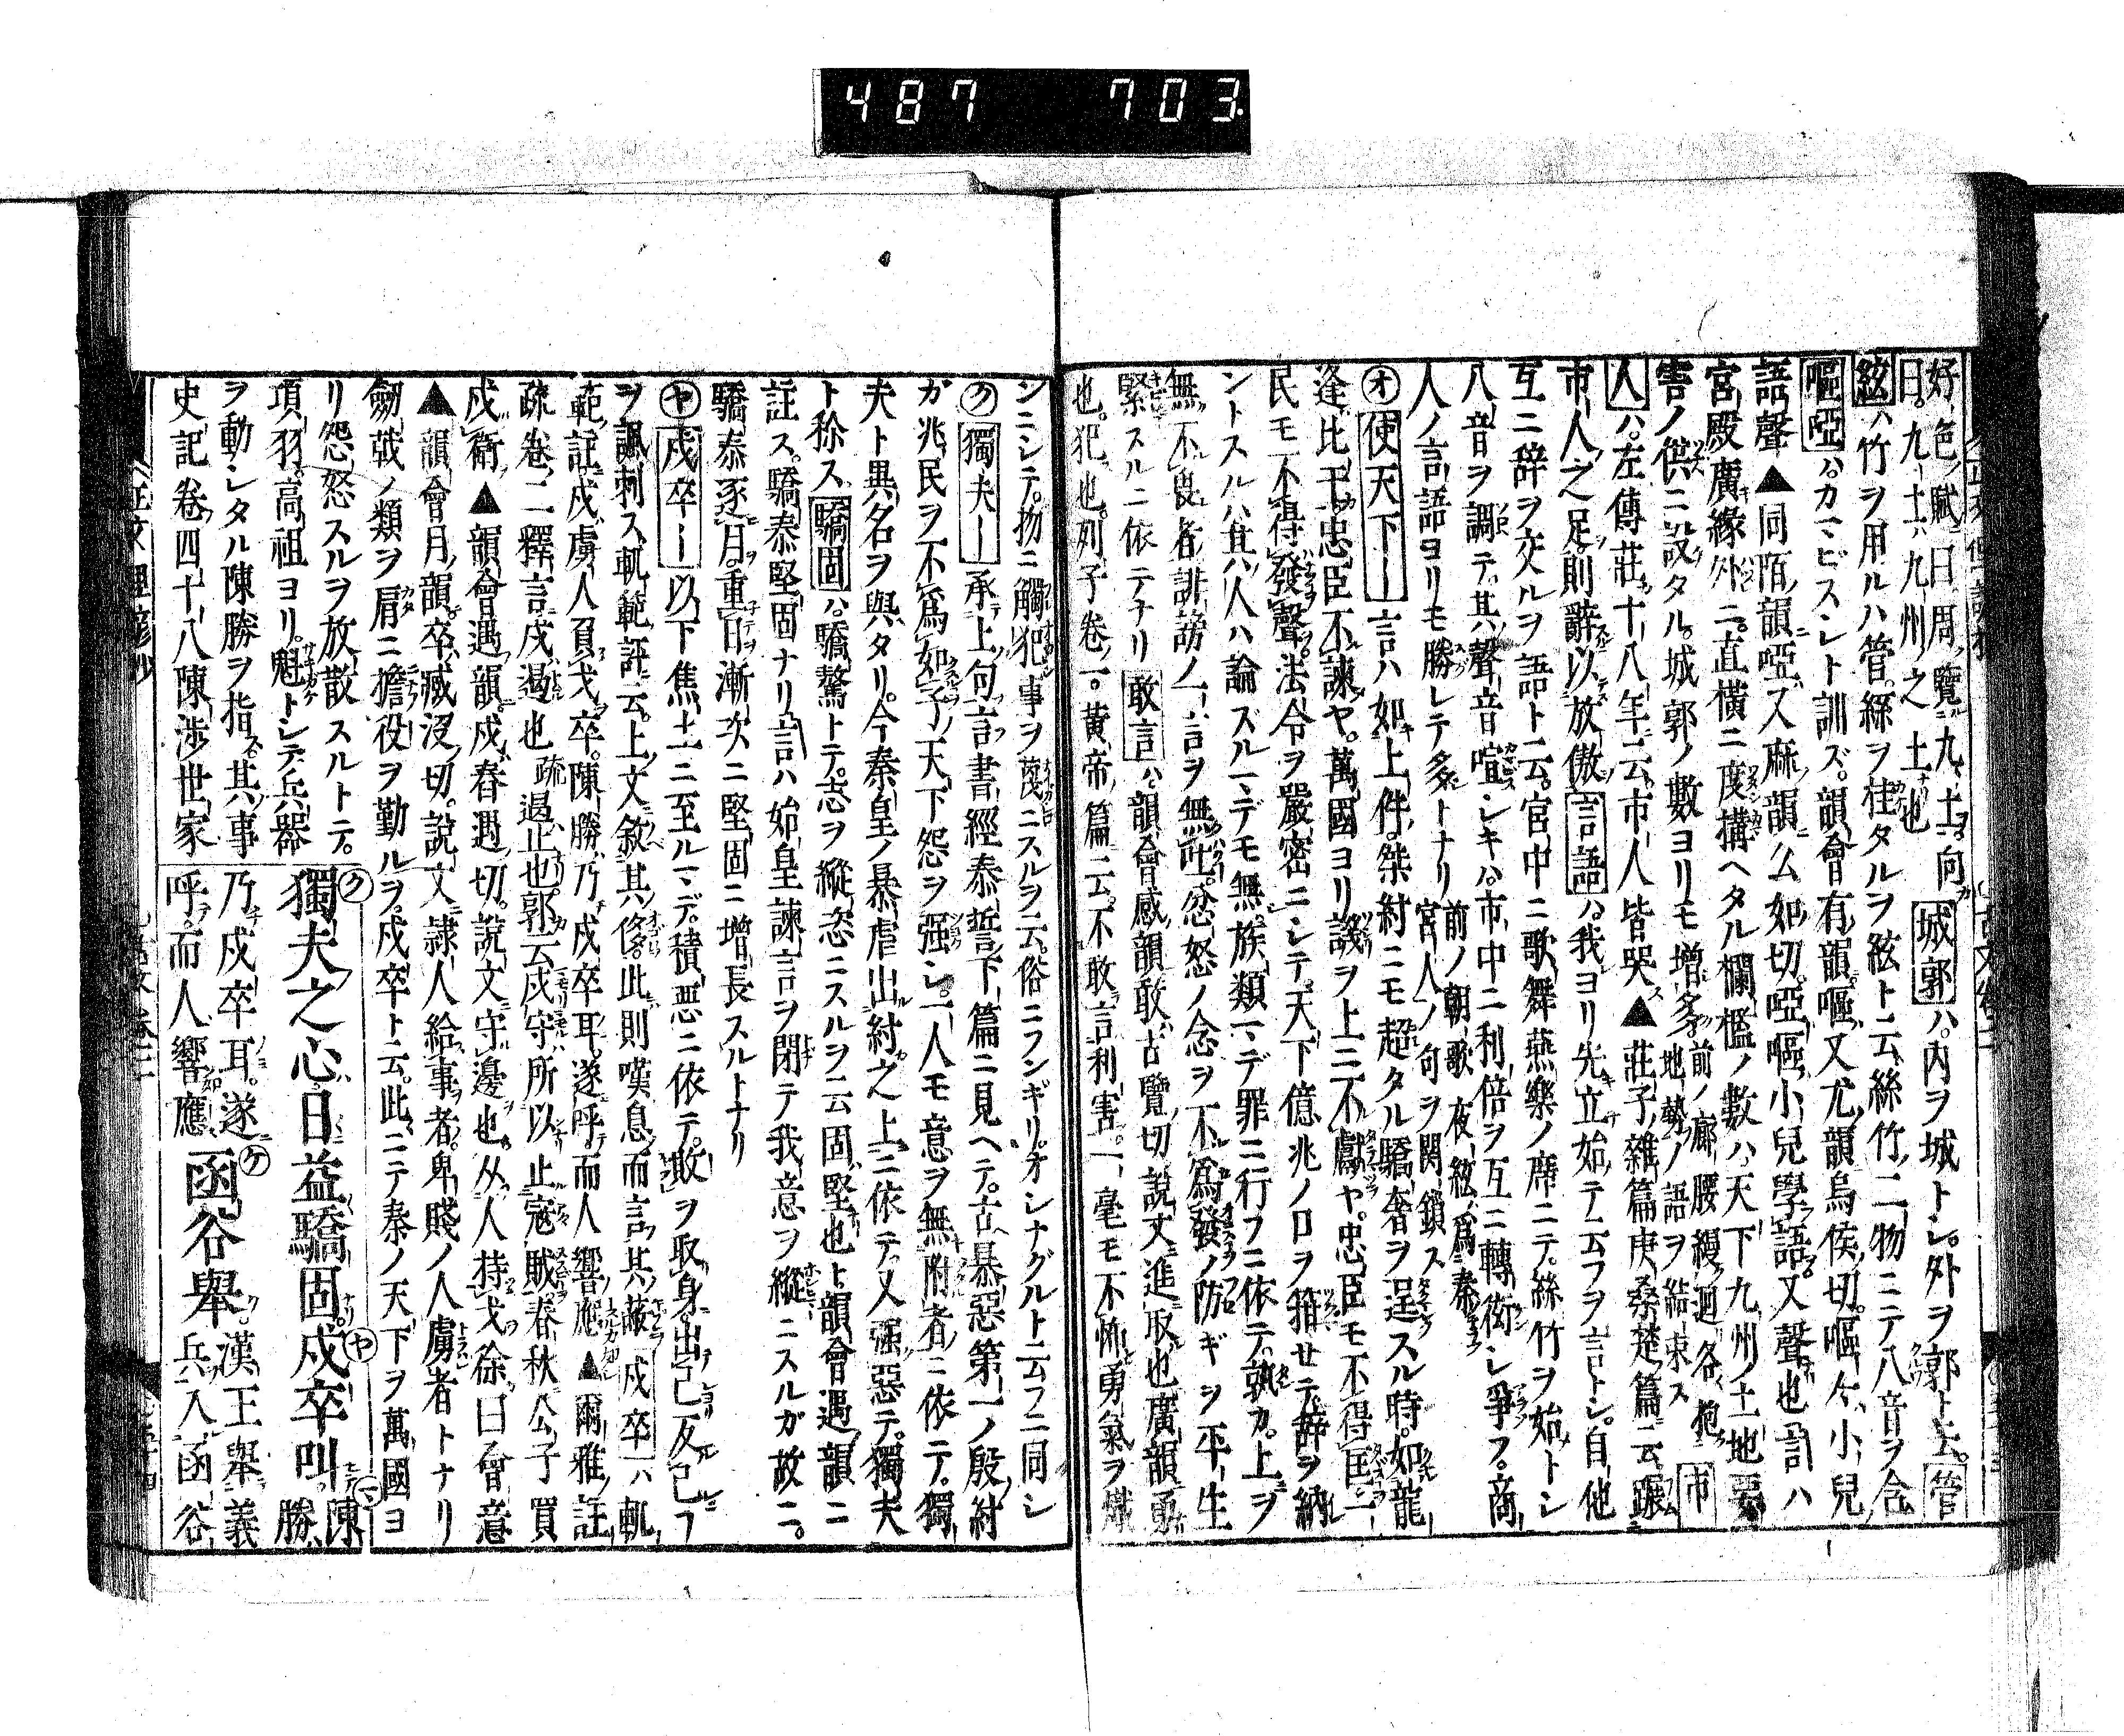 487 703
好色賦曰周覽九土向
曰九土九州之土也
城郭ハ內ヲ城トシ外ヲ郭ト云管
絃ハ竹ヲ用ルハ管絲ヲ桂タルヲ絃ト云絲竹ノ二物ニテ八音ヲ含
嘔啞ハカマビスシト訓ズ韻會有韻嘔又尤韻烏侯切嘔々小兒
語聲▲同陌韻啞又麻韻么如切啞嘔小兒學語又聲也言ハ
宮殿廣緣外ニ直橫ニ度構ヘタル欄檻ノ數ハ天下九州ノ土地要
害ノ供ニ設タル城郭ノ數ヨリモ增多
前ノ廊腰縵迴各抱
地勢ノ語ヲ結束ス
市
人ハ左傳莊十八年云市人皆哭▲莊子雜篇庚桑楚篇云蹍
市人之足則辭以放傲言語ハ我ヨリ先立始テ云フヲ言トシ自他
互ニ辞ヲ交ルヲ語ト云宮中ニ歌舞燕樂ノ席ニテ絲竹ヲ始トシ
八音ヲ調テ其聲音喧シキハ市中ニ利倍ヲ互ニ轉衒シ爭フ商
人ノ言語ヨリモ勝レテ多トナリ
前ノ朝歌夜絃爲秦
宮人ノ句ヲ関鎖ス
オ使天下ー言ハ如上件桀紂ニモ超タル驕奢ヲ逞スル時如龍
逢比干忠臣不諫ヤ萬國ヨリ議ヲ上ニ不獻ヤ忠臣モ不得匡
民モ不得發聲法令ヲ嚴密ニシテ天下億兆ノ口ヲ箝セテ辞ヲ納
ントスルハ其人ハ論ズルマデモ無族類マデ罪ニ行フニ依テ孰カ上ヲ
無不畏者誹謗ノ一言ヲ無吐忿怒ノ念ヲ不爲發ノ防ギヲ平生
緊スルニ依テナリ敢言ハ韻會感韻敢古覽切說文進取也廣韻勇
也犯也列子卷一黃帝篇云不敢言利害一毫モ不怖勇氣ヲ熾
ンニシテ物ニ觸犯事ヲ蔑ニスルヲ云俗ニフンギリオシナグルト云フニ同シ
ク獨夫ー承上句言書經泰誓下篇ニ見ヘテ古暴惡第一ノ殷紂
ガ兆民ヲ不爲如子天下怨ヲ强シ一人モ意ヲ無附者ニ依テ獨
夫ト異名ヲ與タリ今秦皇ノ暴虐出紂之上ニ依テ又强惡テ獨夫
ト稱ス驕固ハ驕驁トテ志ヲ縱恣ニスルヲ云固堅也ト韻會遇韻ニ
註ス驕泰堅固ナリ言ハ始皇諫言ヲ閉テ我意ヲ縱ニスルガ故ニ
驕泰逐月重日漸次ニ堅固ニ增長スルトナリ
ヤ戍卒ー以下焦土ニ至ルマデ積惡ニ依テ敗ヲ取身出己反己フ
ヲ諷刺ス軌範評云上文敘其侈此則嘆息而言其蔽戍卒ハ軌
範註戍虜人負戈卒陳勝乃戍卒耳遂呼而人響應▲爾雅註
疏卷二釋言戍遏也疏遏止也郭云戍守所以止寇賊春秋公子買
戍衛▲韻會遇韻戍舂遇切說文守邊也从人持戈徐曰會意
▲韻會月韻卒臧沒切說文隸人給事者卑賤ノ人虜者トナリ
劔戟ノ類ヲ肩ニ擔役ヲ勤ルヲ戍卒ト云此ニテ秦ノ天下ヲ萬國ヨ
リ怨怒スルヲ放散スルトテ
項羽高祖ヨリ魁トシテ兵器
ヲ動シタル陳勝ヲ指其事
史記卷四十八陳渉世家
ク獨夫之心日益驕固ヤ戍卒叫
マ陳勝
乃戍卒耳遂
呼而人響應
ケ函谷舉
漢王舉義
兵入函谷